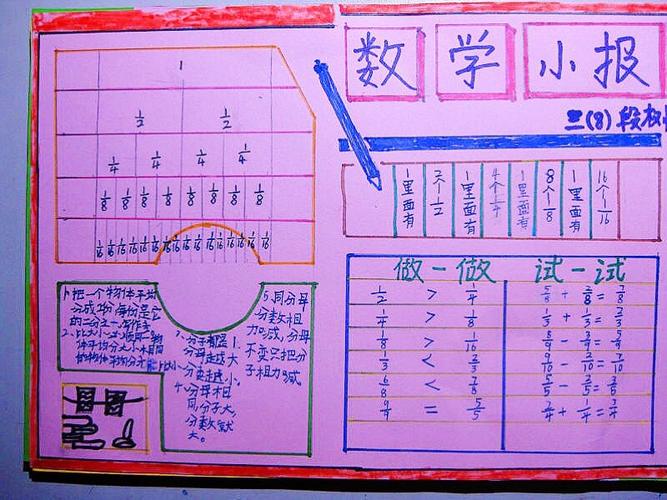 数学小报
三(8)段
1
1/2 1/2
1/4 1/4 1/4 1/4
1/8 1/8 1/8 1/8 1/8 1/8 1/8 1/8
1/16 1/16 1/16 1/16 1/16 1/16 1/16 1/16 1/16 1/16 1/16 1/16 1/16 1/16 1/16 1/16
1里面有
2个1/2
1里面有
4个1/4
1里面有
8个1/8
1里面有
16个1/16
1、把一个物体平均
分成2份每份是它
的二分之一
3、分子都是1
分母越大
分数越小。
4、分母相
同分子大,
分数就
大。
5、同分母
分数相
加减,分母
不变只把分
子相加减
做一做
1/2 > 1/4
1/4 > 1/8
1/8 > 1/16
1/3 < 2/3
6/8 < 7/8
= 5/5
试一试
5/8 + 2/8 = 7/8
1/3 + 1/3 = 2/3
8/9 - 3/9 = 5/9
9/10 - 2/10 = 7/10
5/5 - 2/5 = 3/5
2/4 + 1/4 = 3/4